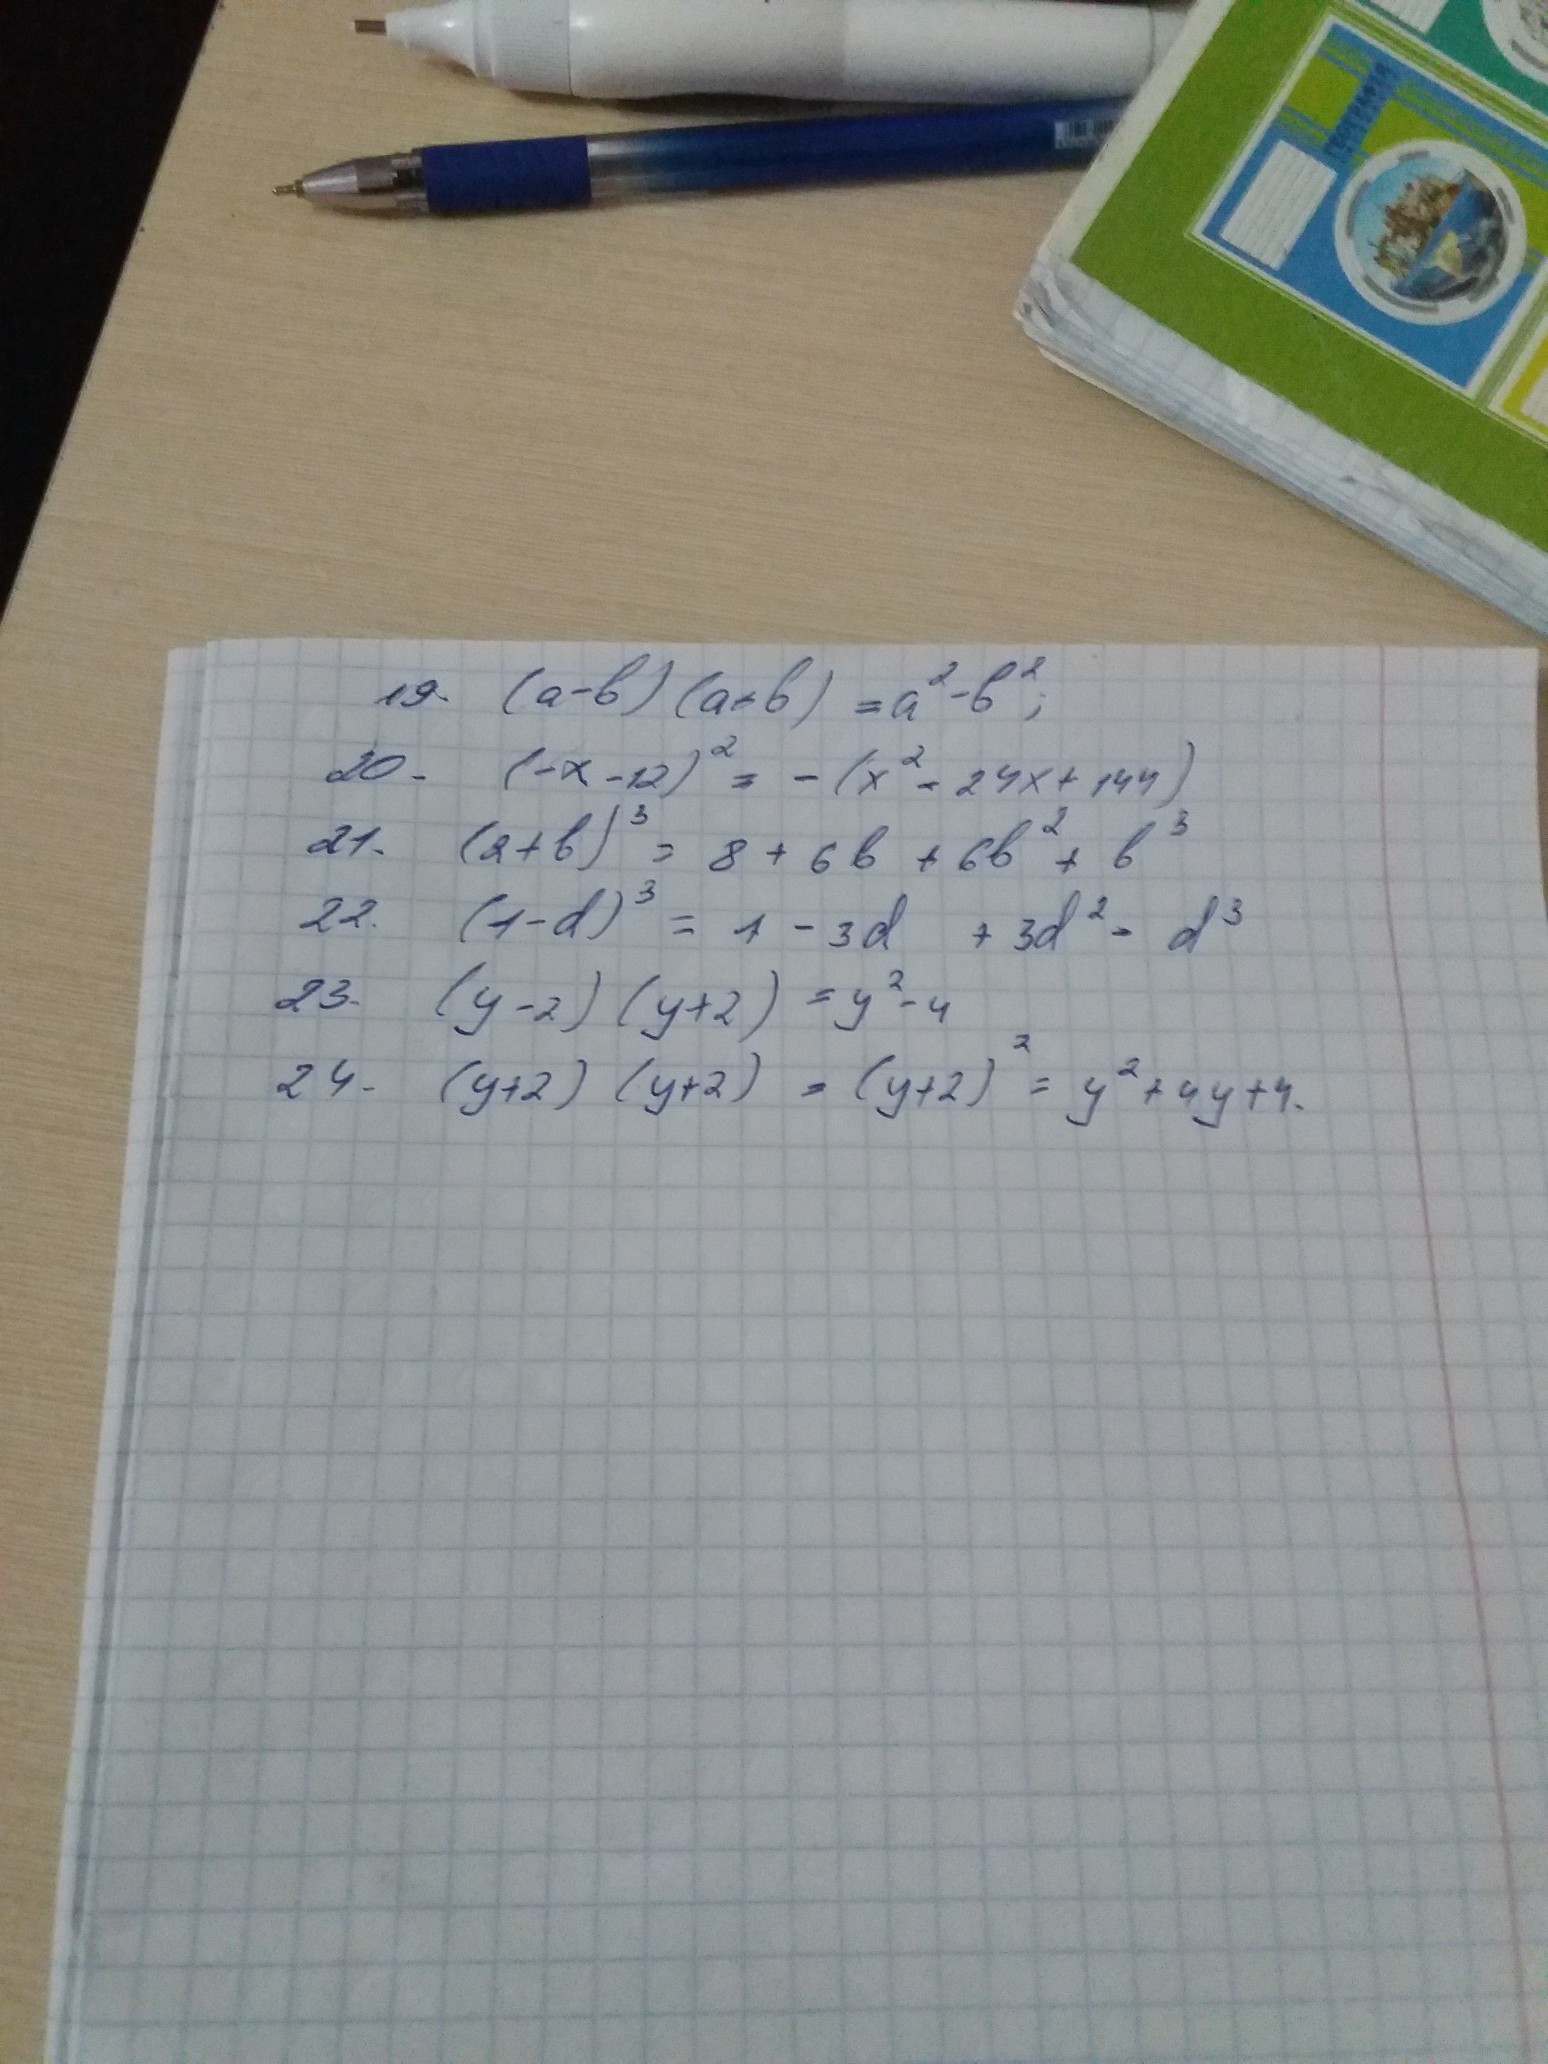 19. (a-b)(a+b) = a²-b²;
20. (-x-12)² = -(x²-24x+144)
21. (2+b)³ = 8+6b+6b²+b³
22. (1-d)³ = 1-3d +3d²- d³
23. (y-2)(y+2) = y²-4
24. (y+2)(y+2) = (y+2)² = y²+4y+4.